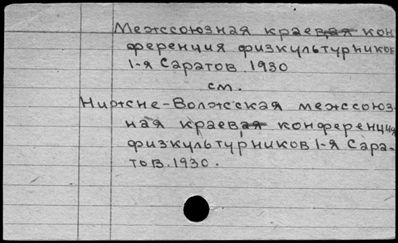 Межсоюзная краевая кон
ференция физкультурников
1-я Саратов. 1930
см.
Нижне-Волжская межсоюз-
ная краевая конференция
физкультурников 1-я Сара-
тов. 1930.